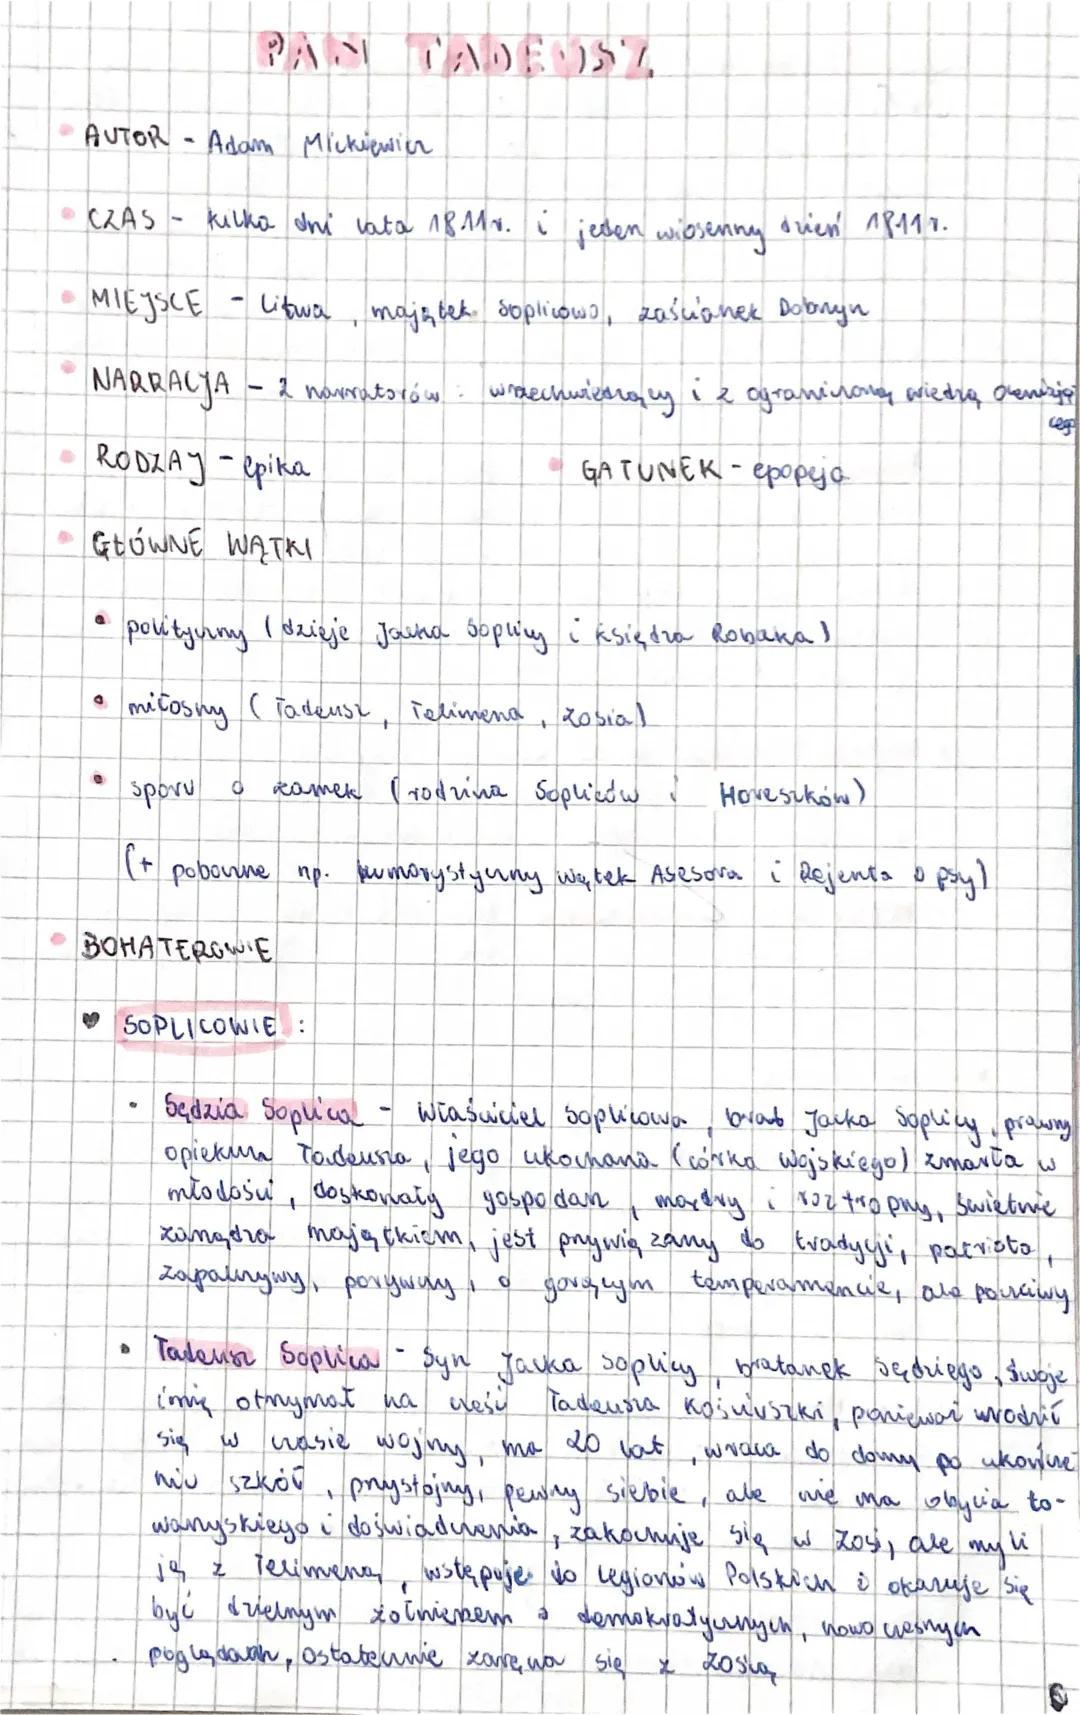 PAN TADEUSZ
AUTOR - Adam Mickiewicz
CZAS - kilka dni lata 1811r. i jeden wiosenny dzień 1811r.
MIEJSCE - Litwa, majątek Soplicowo, zaścianek Dobrzyn
NARRACJA - 2 narratorów: wszechwiedzący i z ograniczoną wiedzą oceniają
cego
RODZAJ - epika
GATUNEK - epopeja
GŁÓWNE WĄTKI
polityczny (dzieje Jacka Soplicy i księdza Robaka)
miłosny (Tadeusz, Telimena, Zosia)
sporu o zamek (rodzina Sopliców i Horeszków)
(+ poboczne np. humorystyczny wątek Asesora i Rejenta o psy)
BOHATEROWIE
SOPLICOWIE:
Sędzia Soplica - właściciel Soplicowa, brat Jacka Soplicy, prawny
opiekun Tadeusza, jego ukochana (córka Wojskiego) zmarła w
młodości, doskonały gospodarz, mądry i roztropny, świetnie
zarządza majątkiem, jest przywiązany do tradycji, patriota,
zapalczywy, porywczy, o gorącym temperamencie, ale poczciwy
Tadeusz Soplica - Syn Jacka Soplicy, bratanek Sędziego, swoje
imię otrzymał na cześć Tadeusza Kościuszki, ponieważ urodził
się w czasie wojny, ma 20 lat, wraca do domu po ukończe
niu szkół, przystojny, pewny siebie, ale nie ma obycia to-
warzyskiego i doświadczenia, zakochuje się w Zosi, ale myli
ją z Telimeną, wstępuje do Legionów Polskich i okazuje się
być dzielnym żołnierzem o demokratycznych, nowoczesnych
poglądach, ostatecznie zaręcza się z Zosią